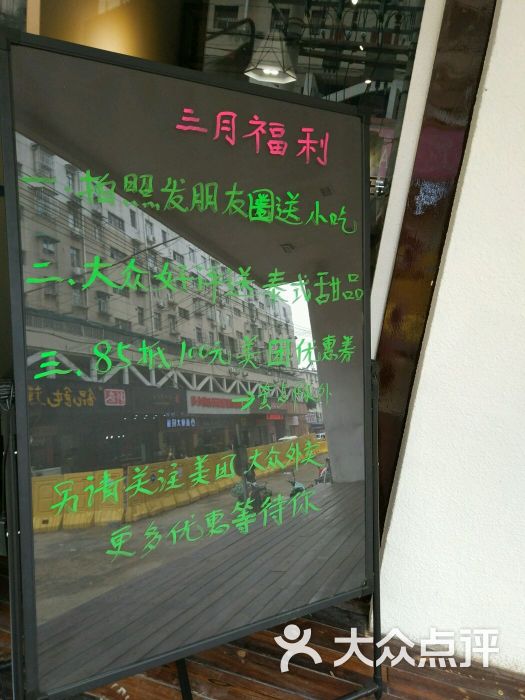 三月福利
一.拍照发朋友圈送小吃
二.大众好评送泰式甜品
三.85抵100元美团优惠券
另请关注美团 大众外卖
更多优惠等待你
大众点评